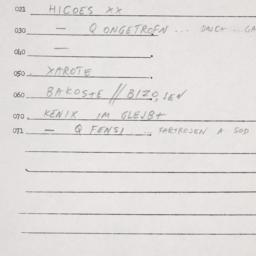 021 HICOES XX
030 — Q ONGETROFN ...
040 —
050 XAROTE
060 BAKOSTE // BIZO,SEN
070 KENIX IM GLEJBT
071 — Q FENSI ... FARTROJEN A SOD